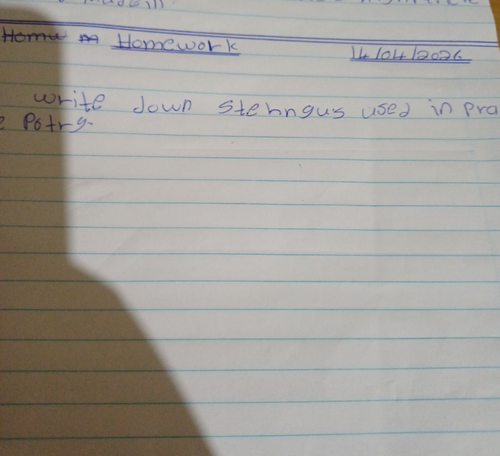 Homework 14/04/2026
write down stehngus used in pra
e Potry.